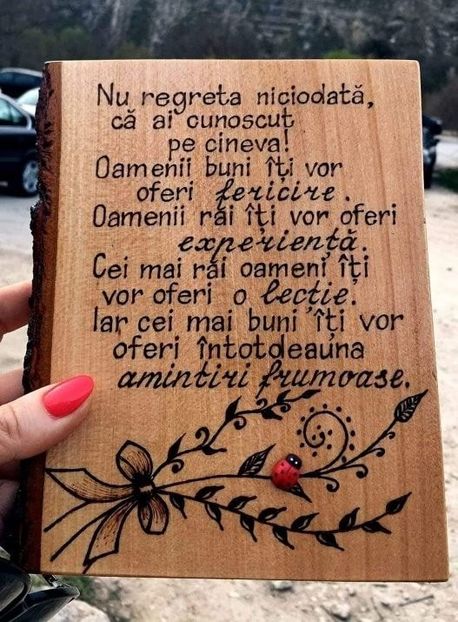 Nu regreta niciodată,
că ai cunoscut
pe cineva!
Oamenii buni îți vor
oferi fericire.
Oamenii răi îți vor oferi
experiență.
Cei mai răi oameni îți
vor oferi o lecție.
Iar cei mai buni îți vor
oferi întotdeauna
amintiri frumoase.